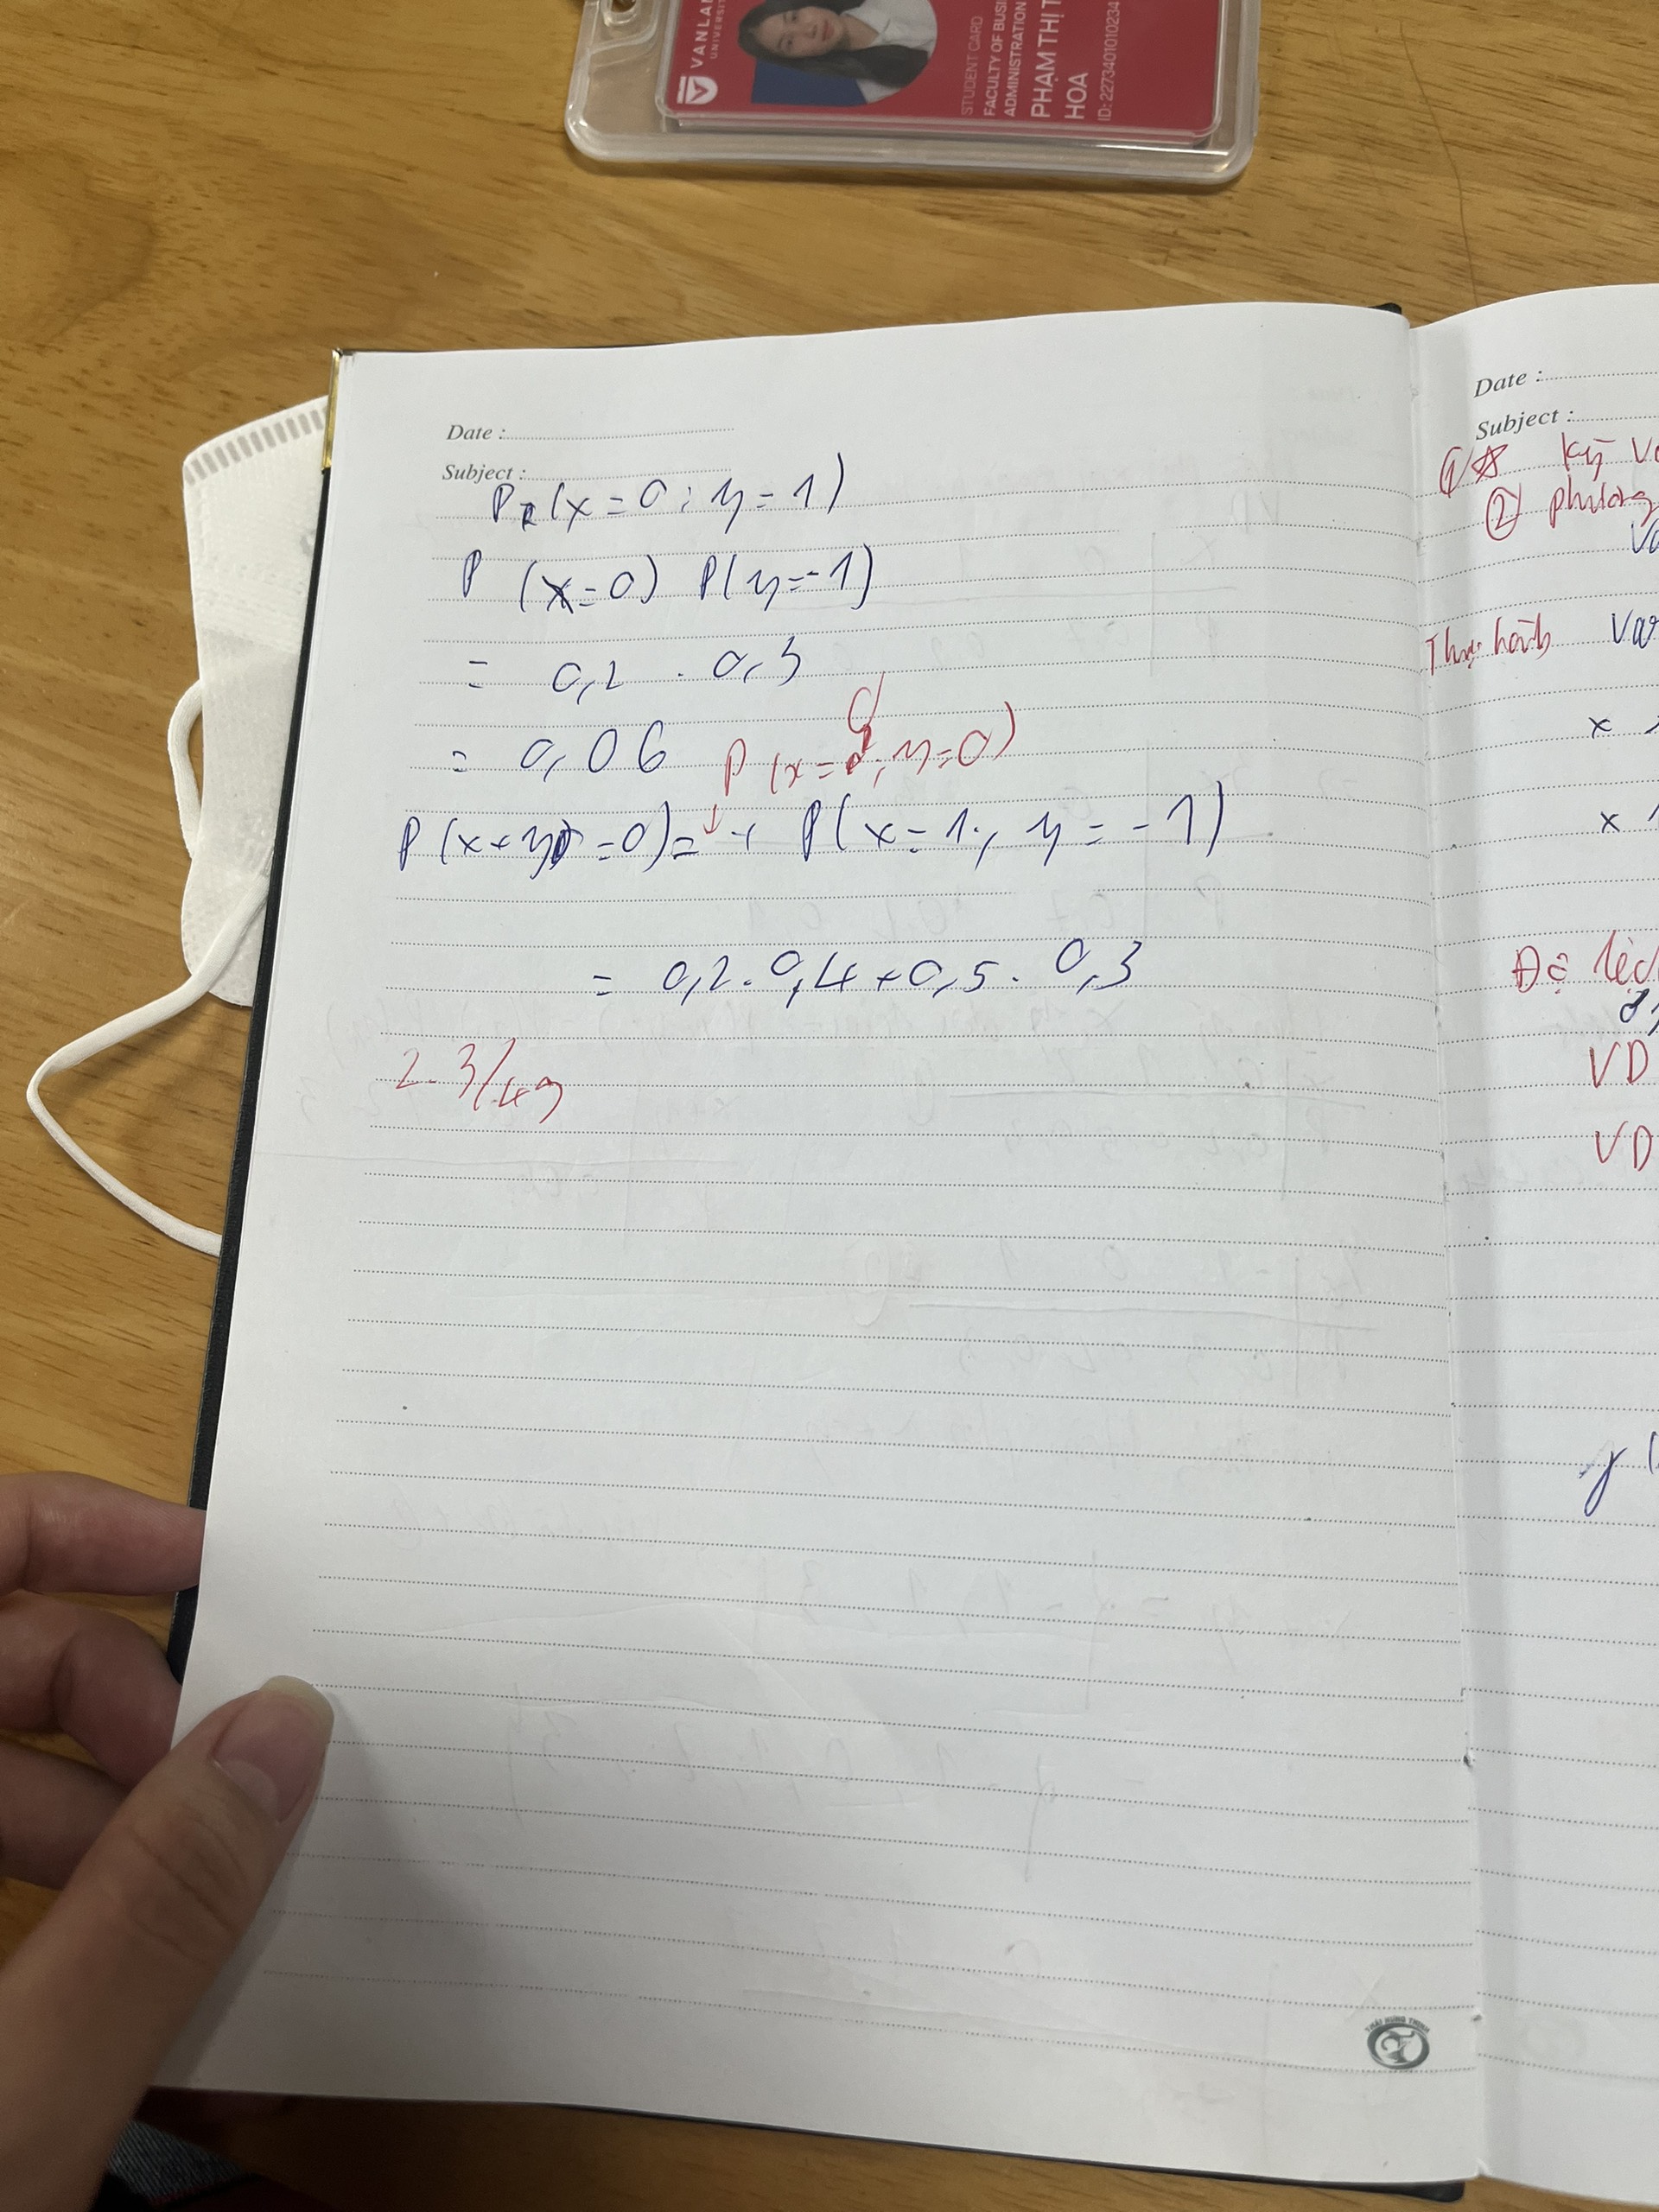 VANLA
UNIVERSIT
STUDENT CARD
FACULTY OF BUSI
ADMINISTRATION
PHẠM THỊ T
HOA
ID: 2273401010234
Date :
Subject :
PR (x = 0 ; y = 1)
P (x = 0) P(y = -1)
= 0,2 . 0,3
= 0,06 P (x = 0 ; y = 0)
P (x + y = 0) = ↓ + P(x = 1 ; y = -1)
= 0,2 . 0,4 + 0,5 . 0,3
2.3/49
THÁI HƯNG THỊNH
Date :
Subject :
① Kỳ V
② phương
Va
Thực hành Var
x
x 1
Độ lệch
VD
VD
y (